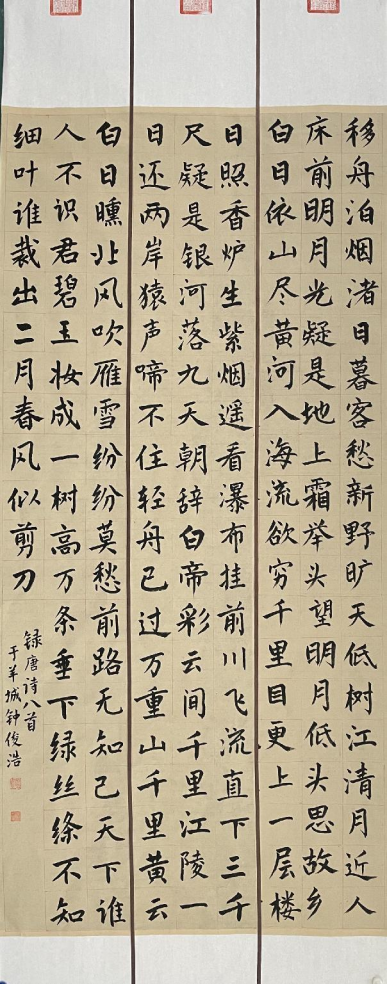 移舟泊烟渚日暮客愁新野旷天低树江清月近人
床前明月光疑是地上霜举头望明月低头思故乡
白日依山尽黄河入海流欲穷千里目更上一层楼
日照香炉生紫烟遥看瀑布挂前川飞流直下三千
尺疑是银河落九天朝辞白帝彩云间千里江陵一
日还两岸猿声啼不住轻舟已过万重山千里黄云
白日曛北风吹雁雪纷纷莫愁前路无知己天下谁
人不识君碧玉妆成一树高万条垂下绿丝绦不知
细叶谁裁出二月春风似剪刀
録唐诗八首
于羊城钟俊浩